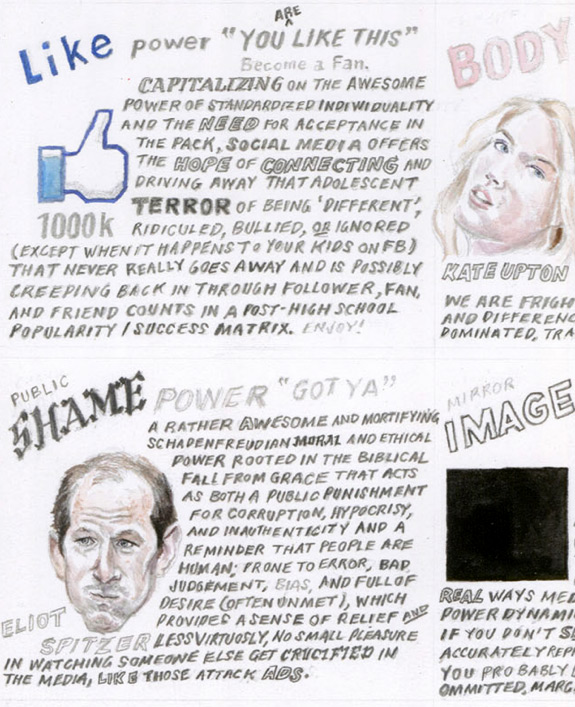 Like power "YOU ARE LIKE THIS"
Become a Fan.
CAPITALIZING ON THE AWESOME
POWER OF STANDARDIZED INDIVIDUALITY
AND THE NEED FOR ACCEPTANCE IN
THE PACK, SOCIAL MEDIA OFFERS
THE HOPE OF CONNECTING AND
DRIVING AWAY THAT ADOLESCENT
TERROR OF BEING 'DIFFERENT',
1000k
RIDICULED, BULLIED, OR IGNORED
(EXCEPT WHEN IT HAPPENS TO YOUR KIDS ON FB)
THAT NEVER REALLY GOES AWAY AND IS POSSIBLY
CREEPING BACK IN THROUGH FOLLOWER, FAN,
AND FRIEND COUNTS IN A POST-HIGH SCHOOL
POPULARITY / SUCCESS MATRIX. ENJOY!
BODY
KATE UPTON
WE ARE FRIGH
AND DIFFERENC
DOMINATED, TRA
PUBLIC
SHAME POWER "GOT YA"
A RATHER AWESOME AND MORTIFYING
SCHADENFREUDIAN MORAL AND ETHICAL
POWER ROOTED IN THE BIBLICAL
FALL FROM GRACE THAT ACTS
AS BOTH A PUBLIC PUNISHMENT
FOR CORRUPTION, HYPOCRISY,
AND INAUTHENTICITY AND A
REMINDER THAT PEOPLE ARE
HUMAN; PRONE TO ERROR, BAD
JUDGEMENT, BIAS, AND FULL OF
DESIRE (OFTEN UNMET), WHICH
PROVIDES A SENSE OF RELIEF AND
LESS VIRTUOSLY, NO SMALL PLEASURE
IN WATCHING SOMEONE ELSE GET CRUCIFIED IN
THE MEDIA, LIKE THOSE ATTACK ADS.
ELIOT
SPITZER
MIRROR
IMAGE
REAL WAYS MED
POWER DYNAMI
IF YOU DON'T S
ACCURATELY REP
YOU PROBABLY
OMMITTED, MARG